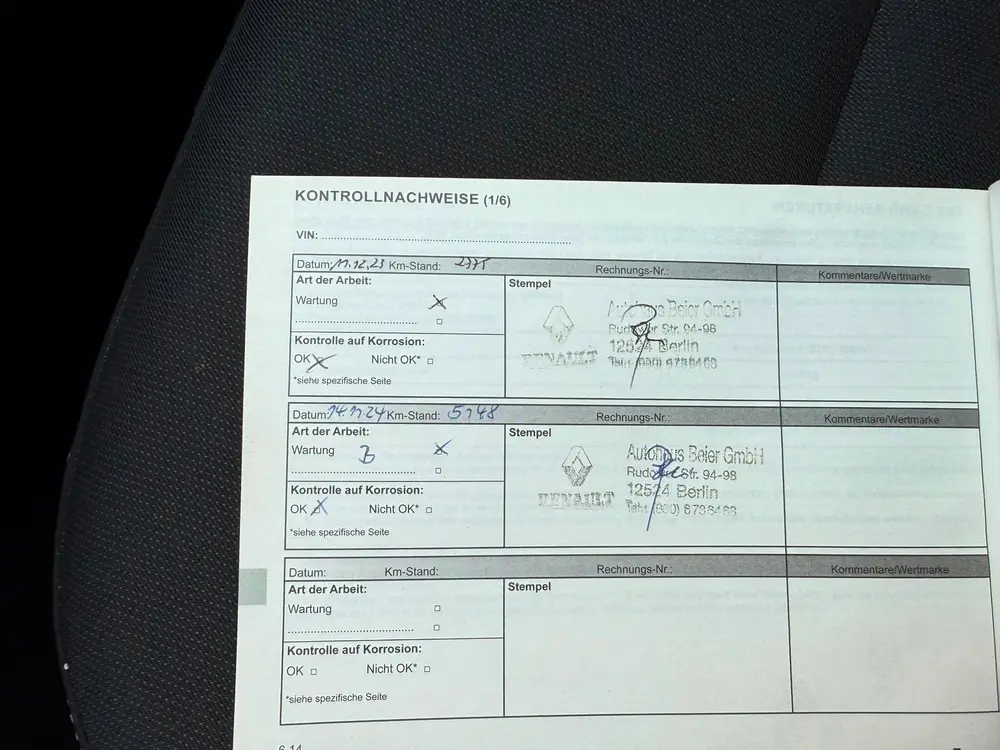 KONTROLLNACHWEISE (1/6)
VIN:
Datum: 11.12.23 Km-Stand: 2775 Rechnungs-Nr.: Kommentare/Wertmarke
Art der Arbeit:
Wartung
Kontrolle auf Korrosion:
OK Nicht OK*
*siehe spezifische Seite
Stempel
RENAULT
Autohaus Beier GmbH
Rudower Str. 94-98
12524 Berlin
Tel.: (030) 6736463
Datum: 14.11.24 Km-Stand: 5148 Rechnungs-Nr.: Kommentare/Wertmarke
Art der Arbeit:
Wartung B
Kontrolle auf Korrosion:
OK Nicht OK*
*siehe spezifische Seite
Stempel
RENAULT
Autohaus Beier GmbH
Rudower Str. 94-98
12524 Berlin
Tel.: (030) 6736463
Datum: Km-Stand: Rechnungs-Nr.: Kommentare/Wertmarke
Art der Arbeit:
Wartung
Kontrolle auf Korrosion:
OK Nicht OK*
*siehe spezifische Seite
Stempel
6.14